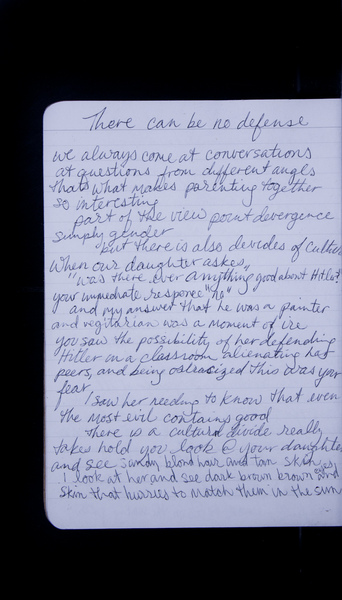 There can be no defense
we always come at conversations
at questions from different angls
thats what makes parenting together
so interesting
part of the view point divergence
simply gender
but there is also devides of cultur
When our daughter askes,
"was there ever anything" good about Hitler?
your immediate response "no"
and my answer that he was a painter
and vegitarian was a moment of ire
you saw the possibility of her defending
Hitler in a classroom alienating her
peers, and being ostracized this was your
fear
I saw her needing to know that even
the most evil contains good
there is a cultural divide really
takes hold you look @ your daughter
and see sandy blond hair and tan skin
I look at her and see dark brown brown eyes and
skin that hurries to match them in the sun